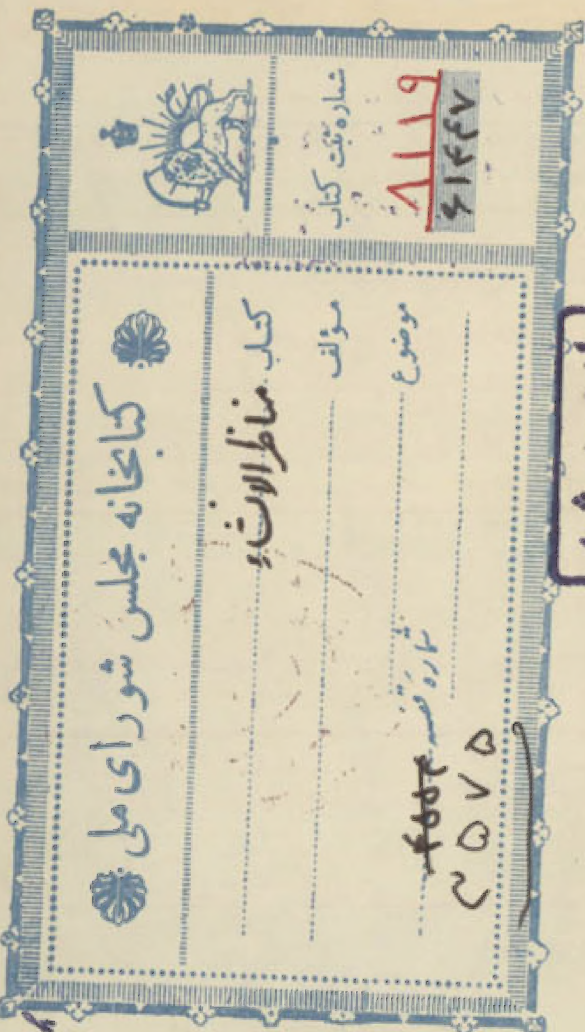 کتابخانه مجلس شورای ملی
کتاب مناظر الانشاء
مؤلف
موضوع
شماره قفسه
۲۵۷۵
شماره ثبت کتاب
۸۱۱۹
۶۱۴۴۷